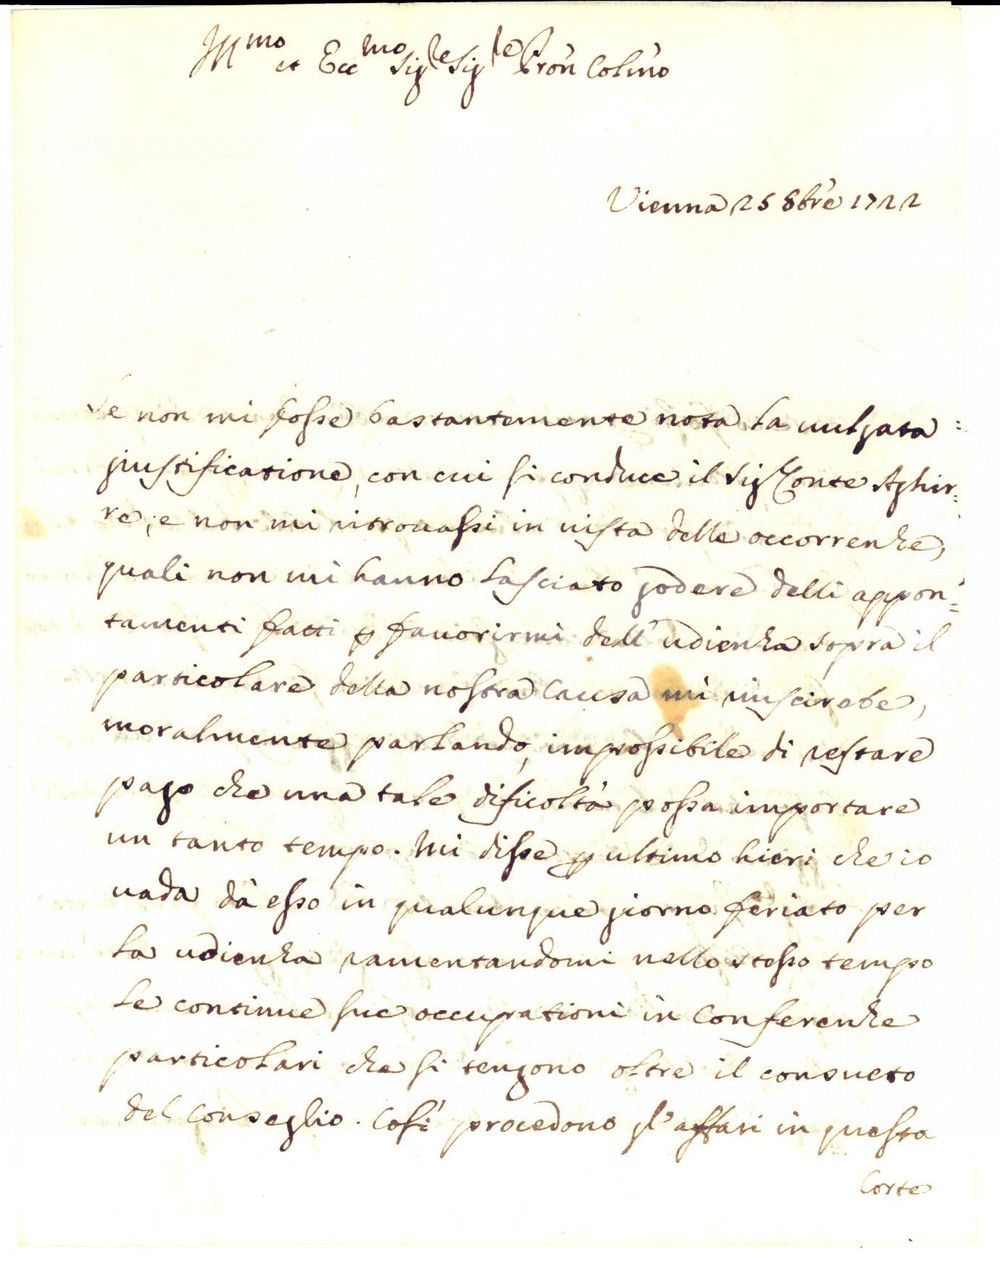 Ill.mo et Ecc.mo Sig.re Sig.re Pròn Colmò
Vienna 25 8bre 1722
Se non mi fosse bastantemente nota la uulgata
giustificatione, con cui si conduce il Sig.r Conte Aghir=
re, e non mi ritrouassi in uista delle occorrenze,
quali non mi hanno lasciato godere delli appon=
tamenti fatti p favorirmi dell'udienza sopra il
particolare della nostra causa mi riuscirebe,
moralmente parlando, impossibile di restare
pago che una tale dificoltà possa importare
un tanto tempo. Mi disse p ultimo hieri che io
uada dà esso in qualunque giorno feriato per
la udienza ramentandomi nello stesso tempo
le continue sue occupationi in Conferenze
particolari che si tengono oltre il consueto
del Conseglio. Così procedono gl'affari in questa
Corte